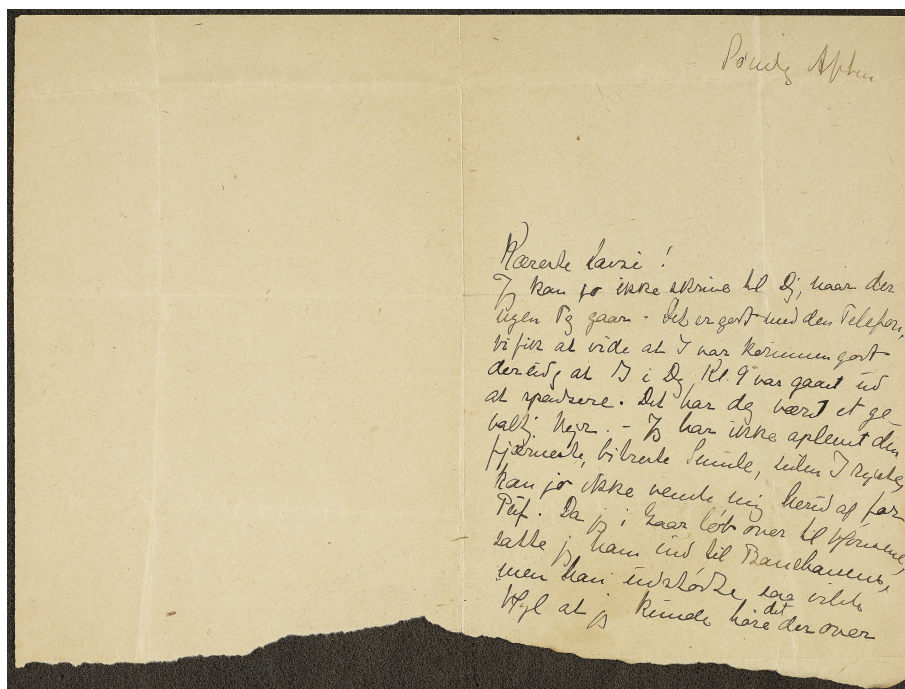 Søndag Aften
Kæreste Lavsi!
Jeg kan jo ikke skrive til Dig, naar der
ingen Tog gaar. Det er godt med den Telefon,
vi fik at vide at I var kommen godt
derud og at I i Dag Kl. 9 var gaaet ud
at spadsere. Det har dog været et ge-
valtig Vejr. - Jeg har ikke oplevet den
fjærneste, bitreste Smule, siden I rejste,
kan jo ikke vende mig herud af for
Puf. Da jeg i Gaar løb over til
satte jeg ham ind til Banehavens,
men han udstødte saa vilde
Hyl at jeg kunde høre det der over